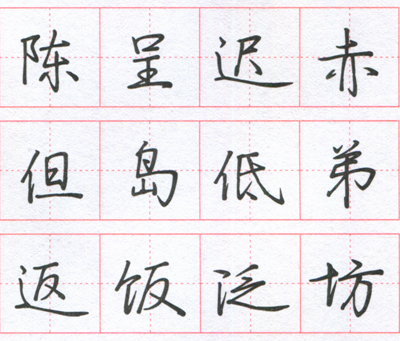 陈呈迟赤
但岛低弟
返饭泛坊